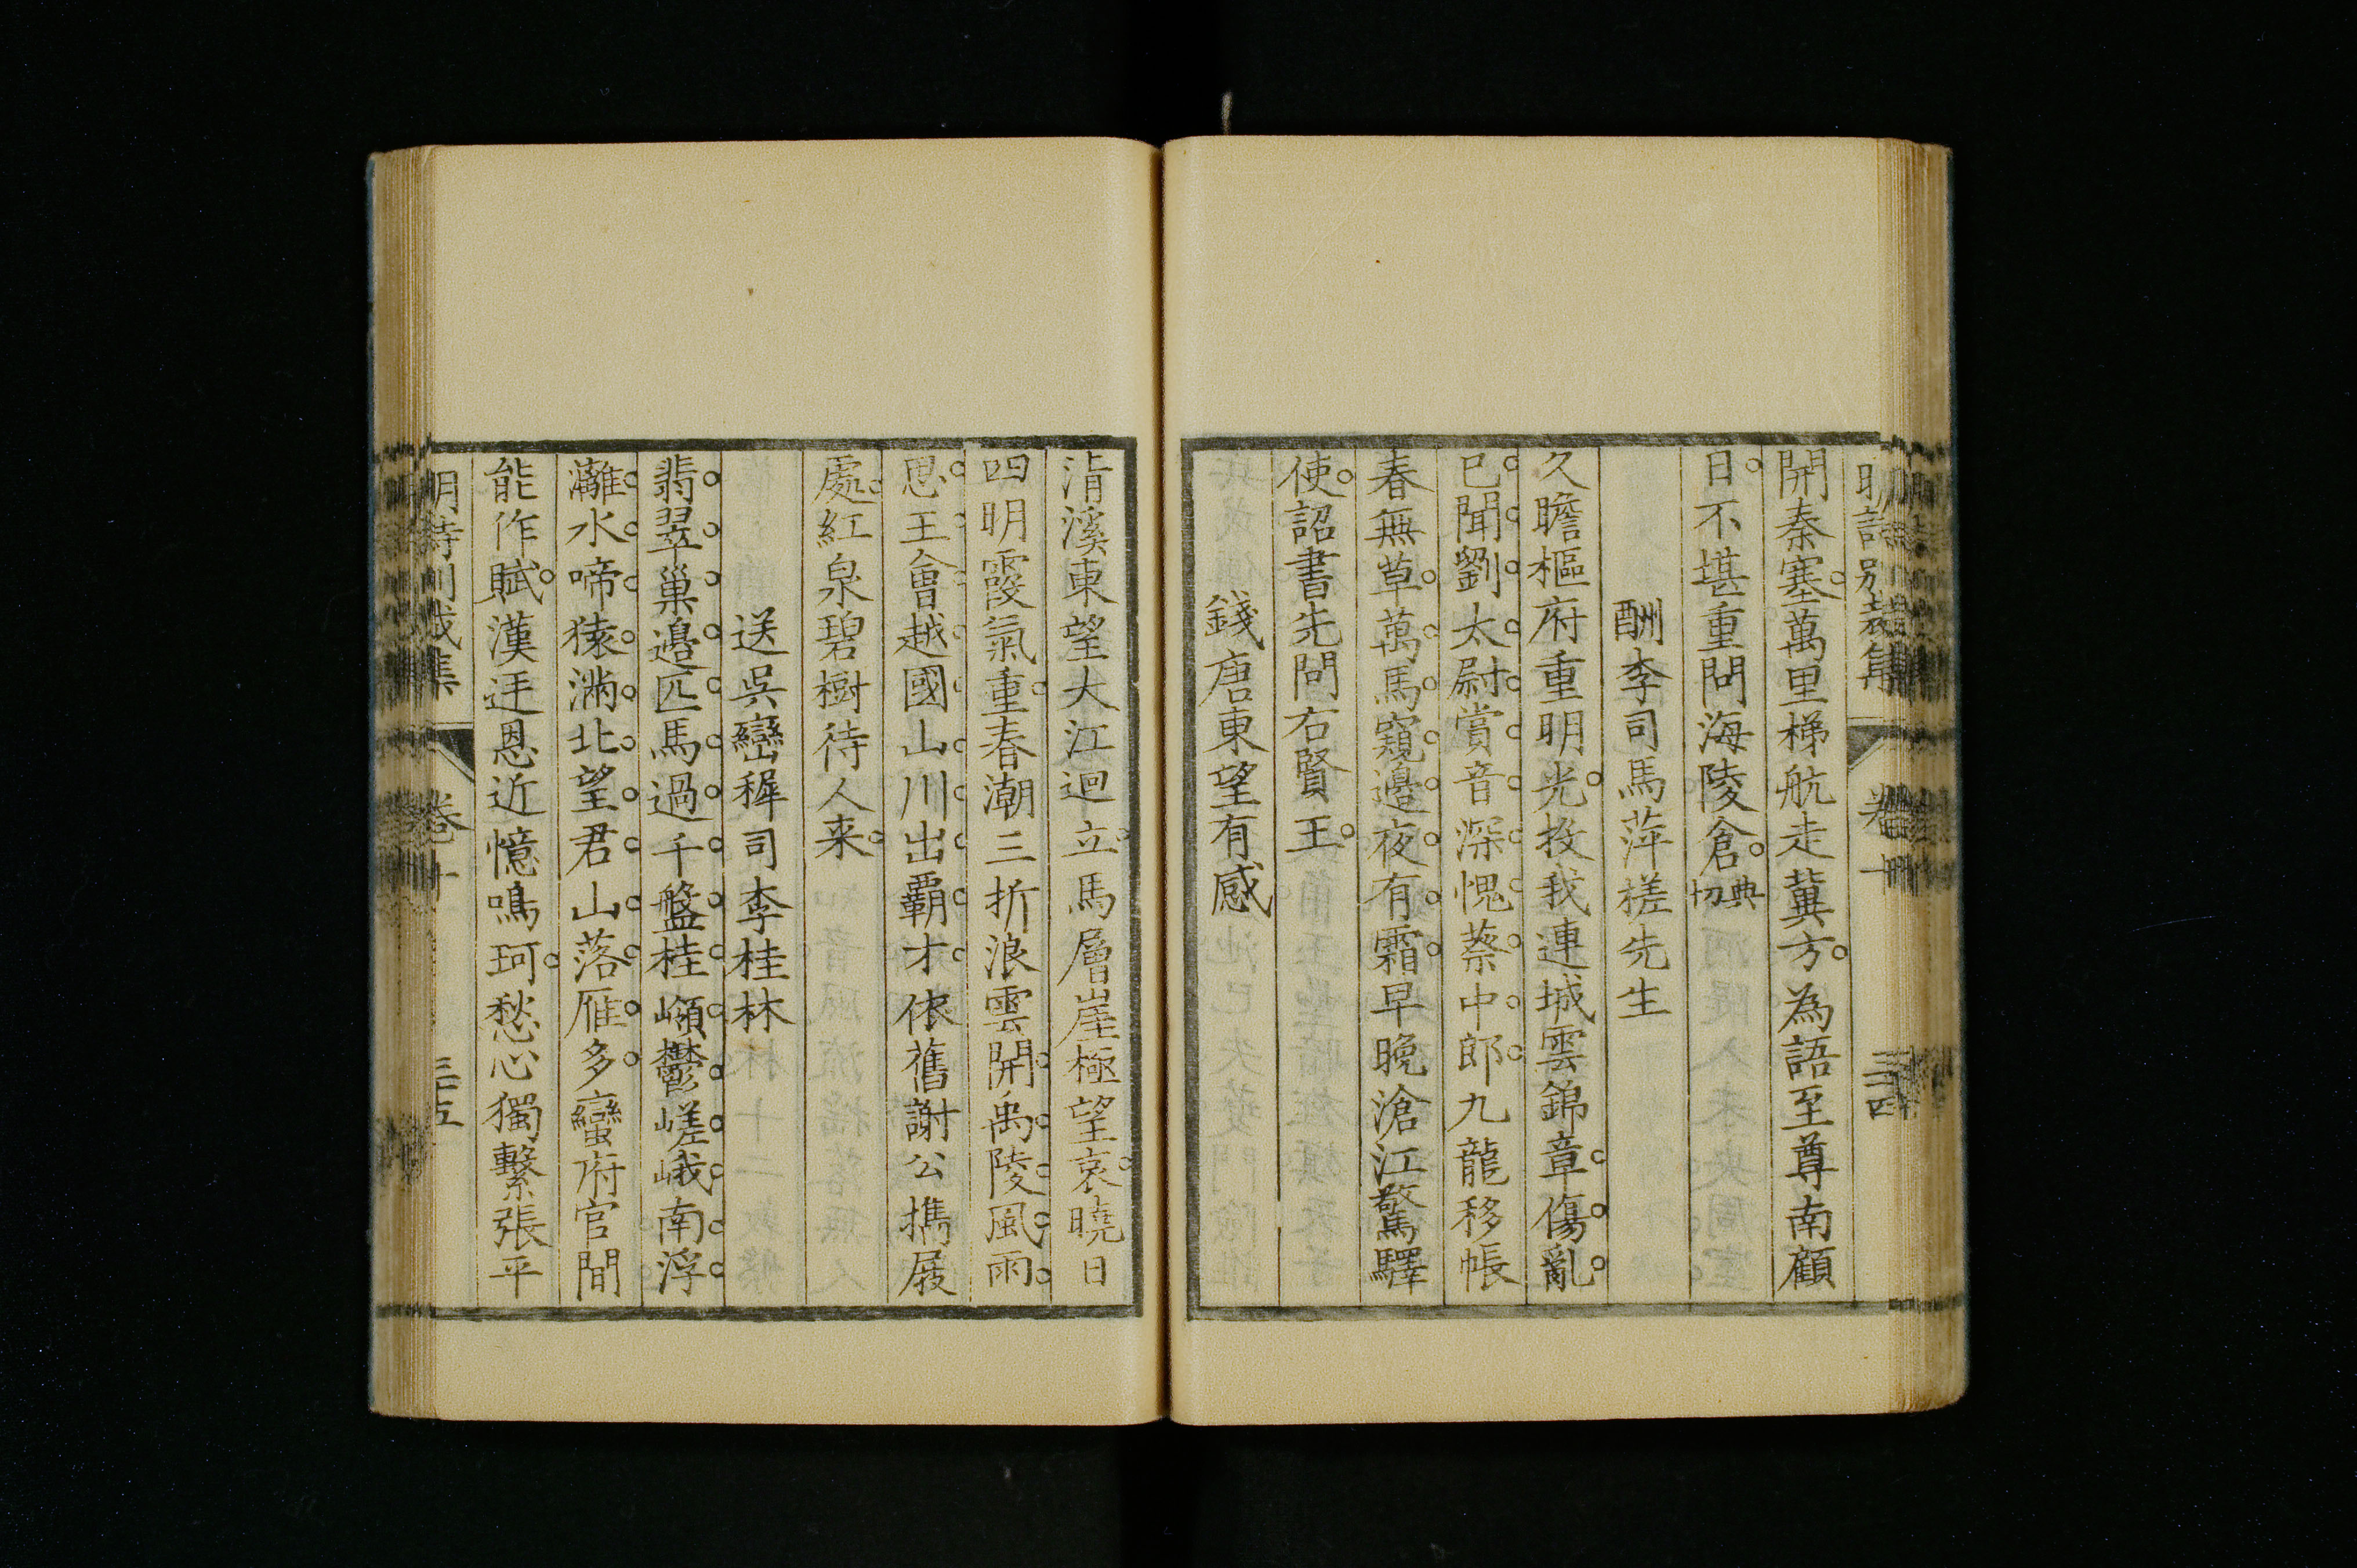 明詩別裁集 卷十 三四
開秦塞萬里梯航走冀方為語至尊南顧
日不堪重問海陵倉典切
酬李司馬萍槎先生
久瞻樞府重明光投我連城雲錦章傷亂
已聞劉太尉賞音深愧蔡中郎九龍移帳
春無草萬馬窺邊夜有霜早晚滄江驚驛
使詔書先問右賢王
錢唐東望有感
清溪東望大江迴立馬層崖極望哀曉日
四明霞氣重春潮三折浪雲開禹陵風雨
思王會越國山川出霸才依舊謝公攜屐
處紅泉碧樹待人来
送吳巒穉司李桂林
翡翠巢邊匹馬過千盤桂嶺鬱嵯峨南浮
灕水啼猿滿北望君山落雁多蠻府官閒
能作賦漢廷恩近憶鳴珂愁心獨繫張平
明詩別裁集 卷十 三五